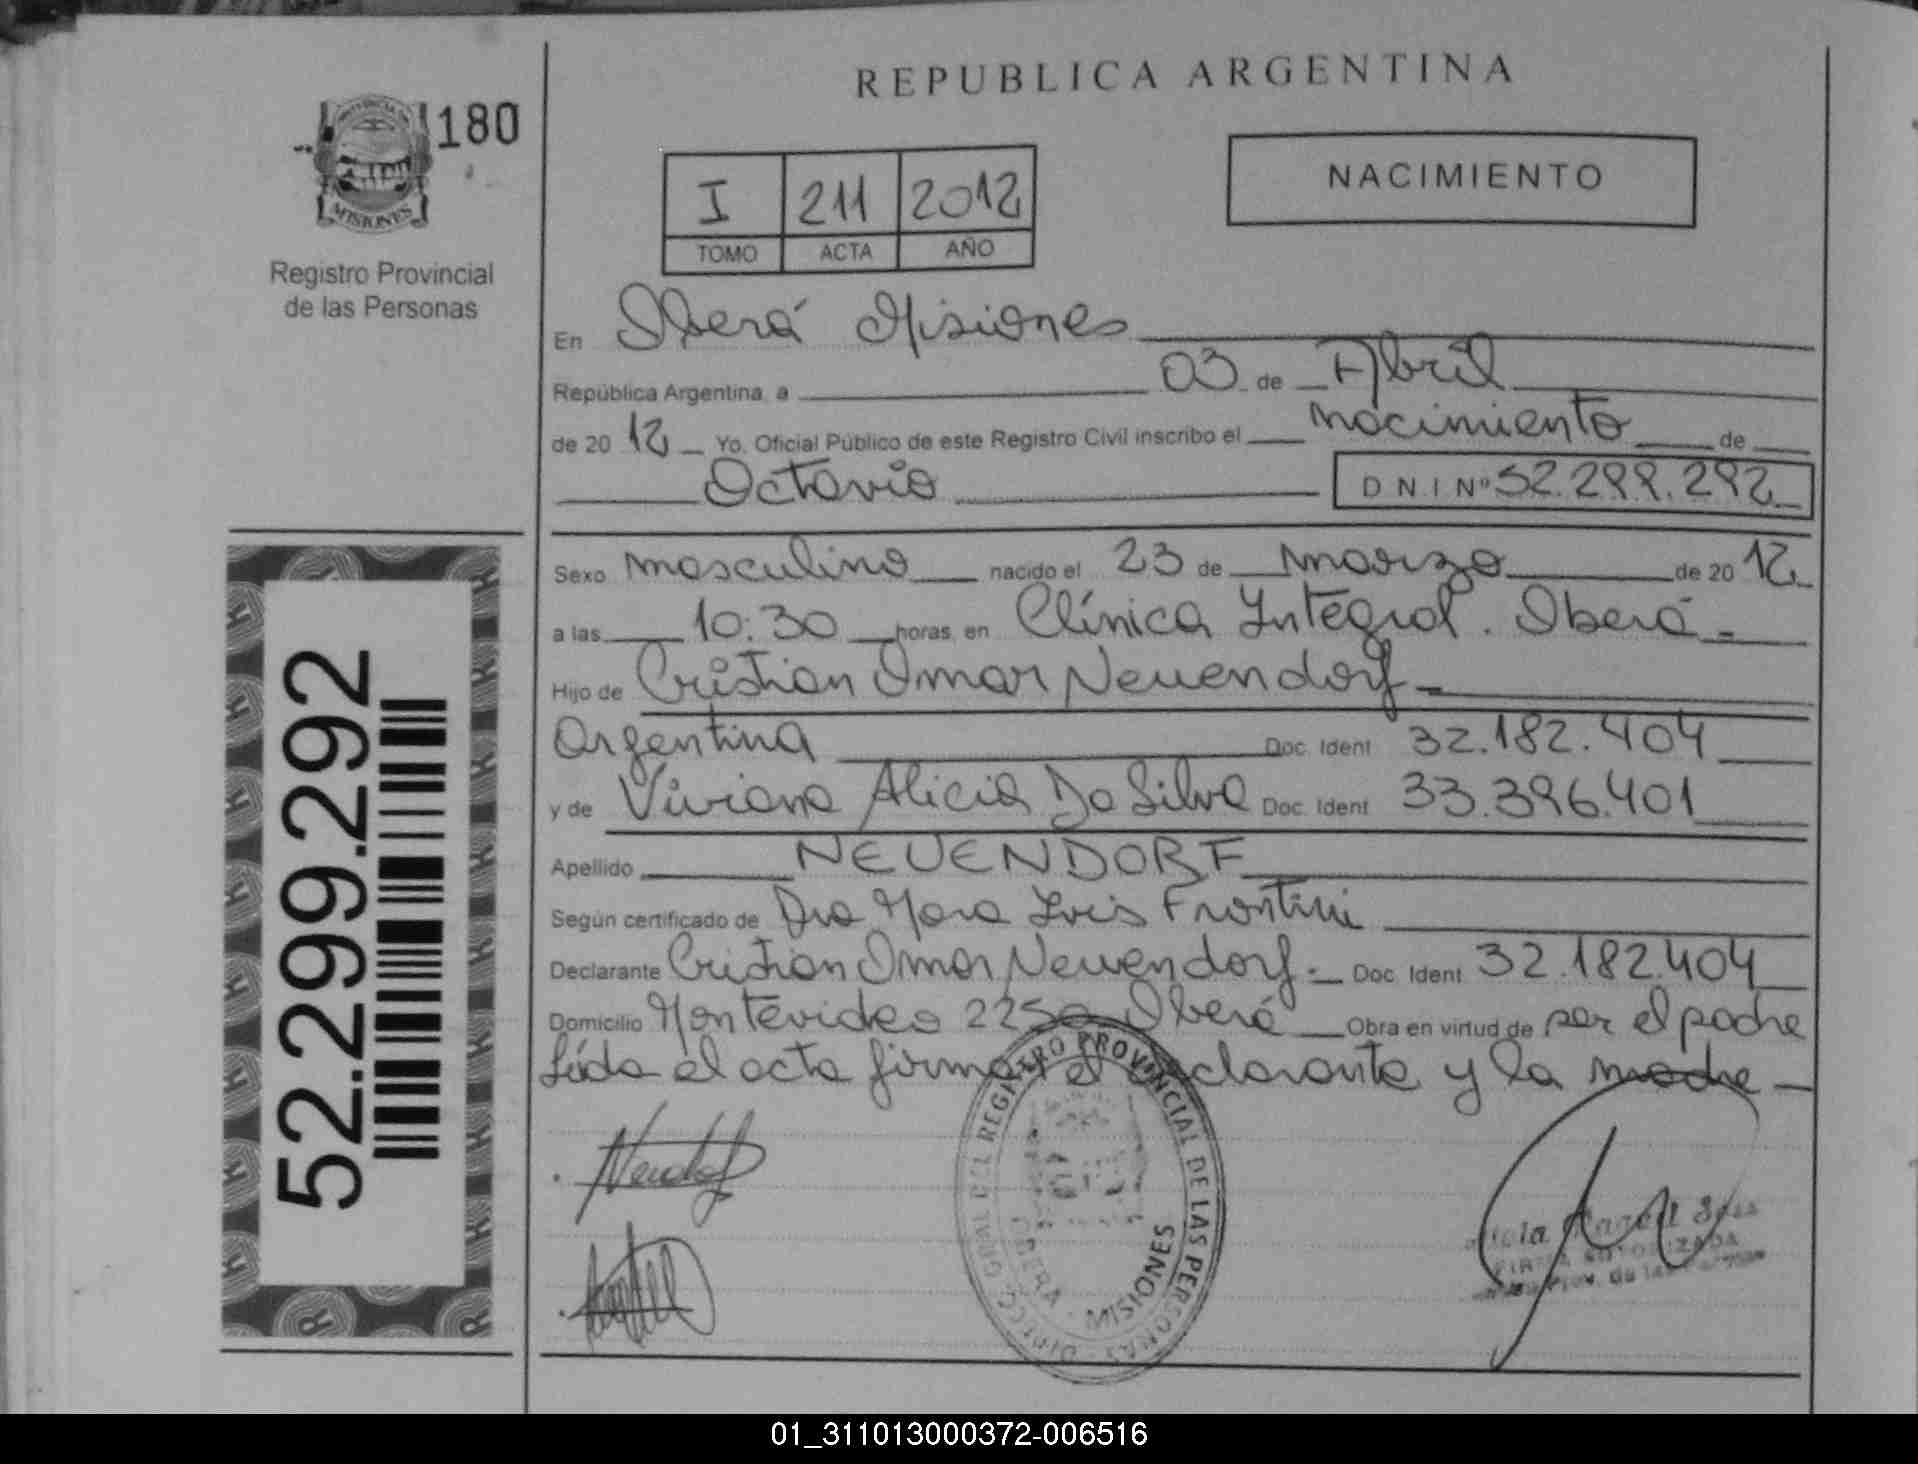 REPUBLICA ARGENTINA
180
PROVINCIA DE
MISIONES
Registro Provincial
de las Personas
I 211 2012
TOMO ACTA AÑO
NACIMIENTO
En Oberá Misiones
República Argentina, a 03 de Abril
de 20 12 Yo, Oficial Público de este Registro Civil inscribo el nacimiento de
Octavio D N.I Nº 52.299.292
Sexo masculino nacido el 23 de marzo de 2012
a las 10:30 horas, en Clínica Integral. Oberá
Hijo de Cristian Omar Neuendorf
Argentina Doc. Ident 32.182.404
y de Viviana Alicia Da Silva Doc. Ident 33.396.401
Apellido NEUENDORF
Según certificado de Dra Mara Inés Frontini
Declarante Cristian Omar Neuendorf Doc. Ident 32.182.404
Domicilio Montevideo 2250 Oberá Obra en virtud de ser el padre
Leída el acta firman el declarante y la madre
52.299.292
REGISTRO PROVINCIAL DE LAS PERSONAS
OBERA - MISIONES
FIRMA AUTORIZADA
01_311013000372-006516